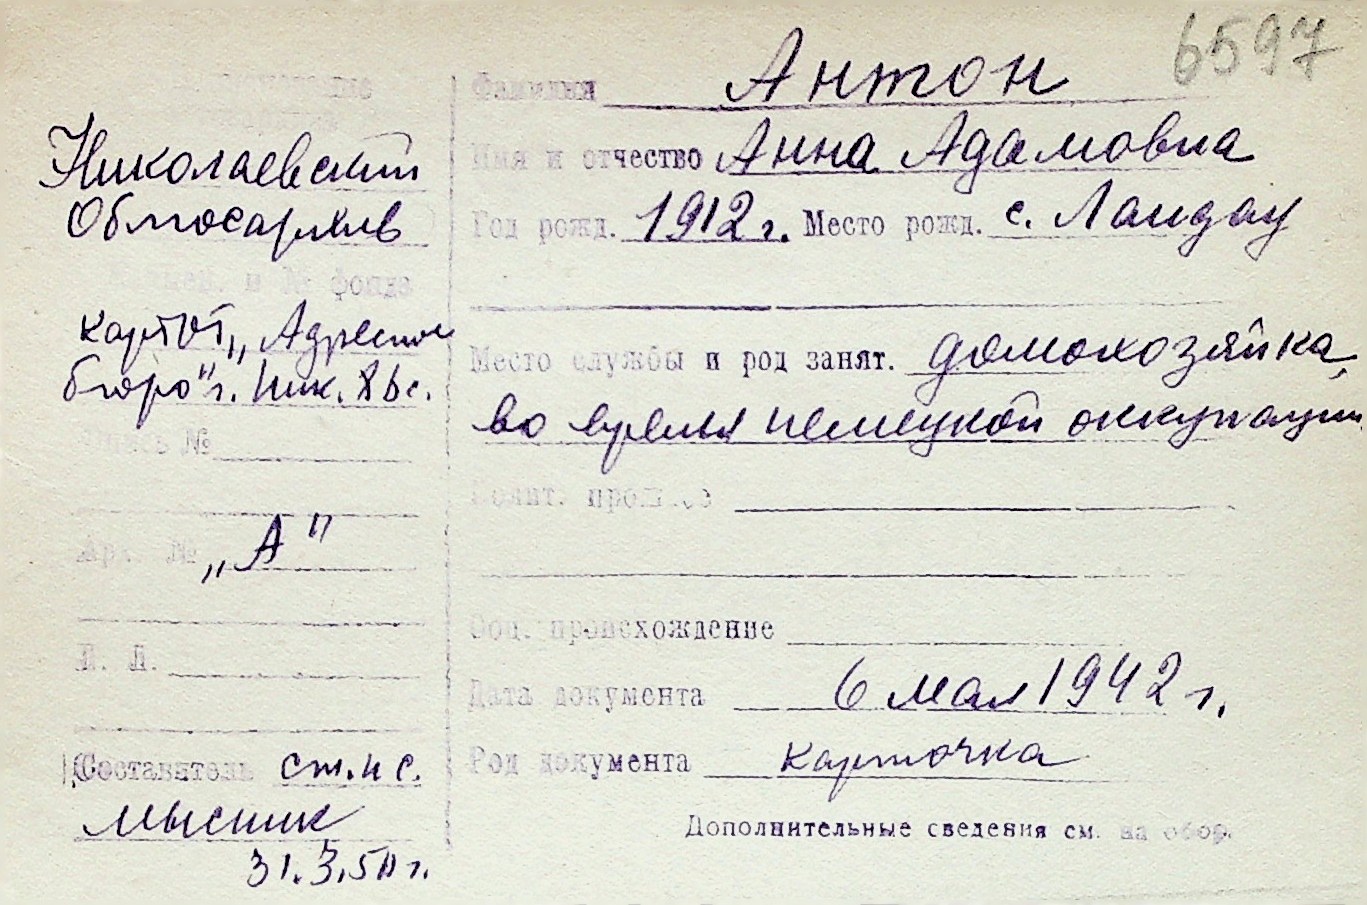 6597
Фамилия Антон
Имя и отчество Анна Адамовна
Год рожд. 1912 г. Место рожд. с. Ландау
Место службы и род занят. домохозяйка,
во время немецкой оккупации
Полит. прошлое
Соц. происхождение
Дата документа 6 мая 1942 г.
Род документа карточка
Дополнительные сведения см. на обор.
Николаевский
Облгосархив
и № фонда
картот. „Адресное
бюро" г. Ник.
Опись №
Арх. № „А"
Л. Л.
Составитель ст. н с.
Мысник
31.3.50 г.